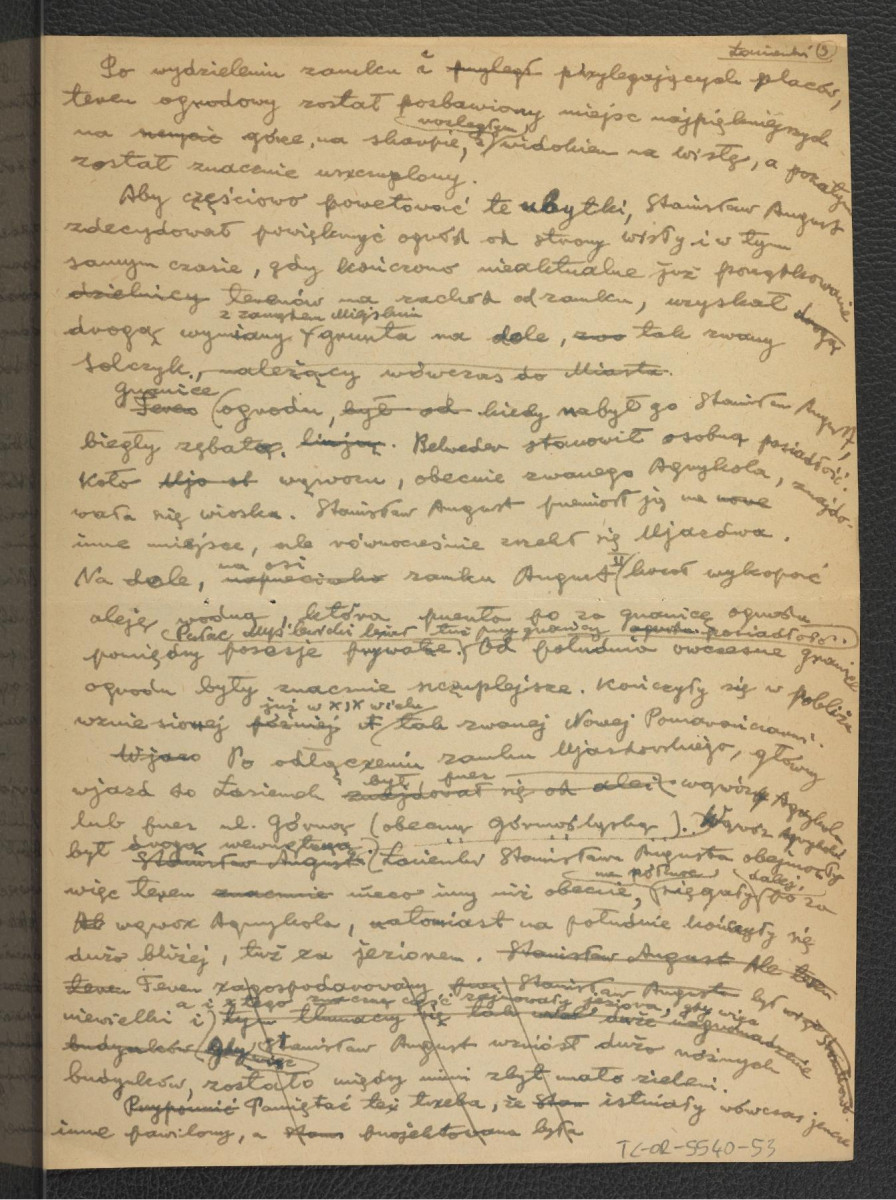 Łazienki (5)
Po wydzieleniu zamku i przyległ przylegających placów,
teren ogrodowy został pozbawiony miejsc najpiękniejszych
na górze, na skarpie, z rozległym widokiem na Wisłę, a poza tym
został znacznie uszczuplony.
Aby częściowo powetować te ubytki, Stanisław August
zdecydował powiększyć ogród od strony Wisły i w tym
samym czasie, gdy kończono nieaktualne już porządkowanie
dzielnicy terenów na zachód od zamku, uzyskał drogą
drogą wymiany z zarządem Miejskim grunta na dole, zwo tak zwany
Solczyk, należący wówczas do Miasta.
Granice
Teren ogrodu, był od kiedy nabył go Stanisław August,
biegły zębatą linją. Belweder stanowił osobną posiadłość.
Koło wąwozu, obecnie zwanego Agrykola, znajdo-
wała się wioska. Stanisław August przeniósł ją na nowe
inne miejsce, ale równocześnie zrzekł się Ujazdowa.
Na dole, na osi zamku August II kazał wykopać
aleję wodną, która przeszła po za granicę ogrodu
Pałac Myśliwiecki leżał tuż przy granicy ogrodu posiadłości.
pomiędzy posesje prywatne. Od południa ówczesne granice
ogrodu były znacznie szczuplejsze. Kończyły się w pobliżu
już w XIX wieku
wzniesionej później tak zwanej Nowej Pomarańczarni.
Wjazd Po odłączeniu zamku Ujazdowskiego, główny
wjazd do Łazienek był przez znajdował się od alei wąwóz Agrykola
lub przez ul. Górną (obecną Górnośląską). Wąwóz Agrykola
był drogą wewnętrzną.
Stanisław August Łazienki Stanisława Augusta obejmowały
więc teren znacznie nieco inny niż obecnie, na północ sięgały dalej, po za
wąwóz Agrykola, natomiast na południe kończyły się
dużo bliżej, tuż za jeziorem. Stanisław August Ale teren
teren Teren zagospodarowany przez Stanisław Augusta był więc stosunkowo
a i z tego znaczną część zajmowały jeziora, gdy więc
niewielki i tym tłumaczy się tak duże nagromadzenie
budynków gdy więc Stanisław August wzniósł dużo różnych
budynków, zostało między nimi zbyt mało zieleni.
Przypomnić Pamiętać też trzeba, że Stan istniały wówczas jeszcze
inne pawilony, a projektowana była
TZ-02-5540-53